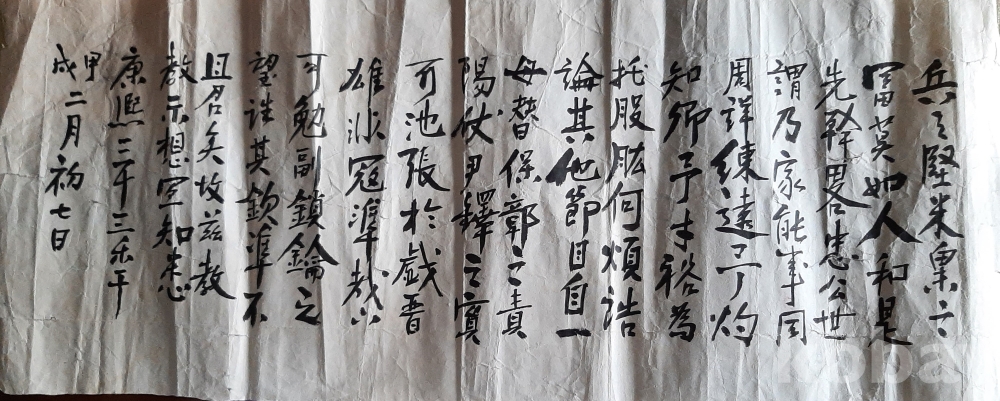 兵之堅米粟之
富莫如人和是
先幹畧忠公世
謂乃家能事同
周詳練達了灼
知卿予才裕為
托股肱何煩誥
論其他節目自一
毋替保鄣之責
陽仗尹鐸之實
可池張於戲晋
雄非冦準哉以
可勉副鎖鑰之
望誰其欽準不
且召矣故茲教
教示想宜知悉
康熙三年三
甲戌二月初七日
kobay